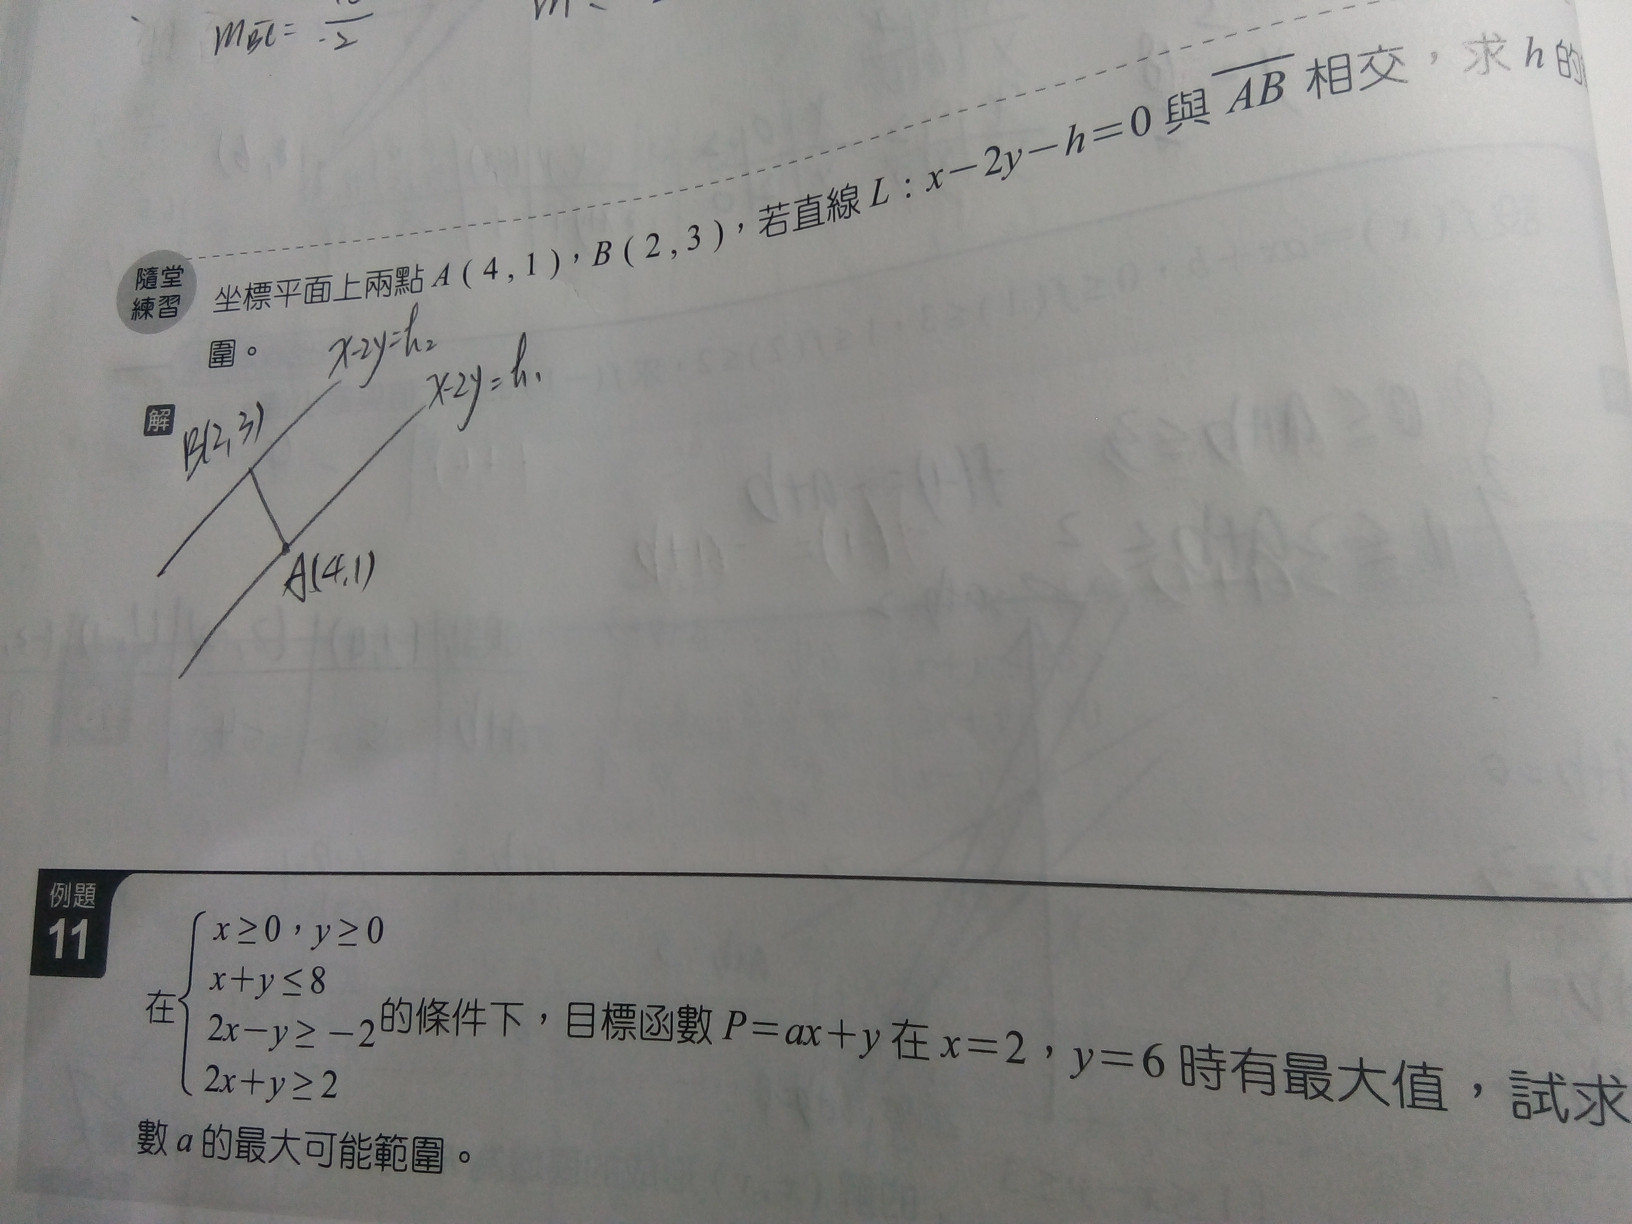 m BC = 
-2
坐標平面上兩點 A ( 4 , 1 )，B ( 2 , 3 )，若直線 L：x－2y－h＝0 與 AB 相交，求 h 的
隨堂
練習
圍。
x-2y=h₂
x-2y=h₁
解
B(2,3)
A(4,1)
例題
11
x≥0，y≥0
x+y≤8
在 2x－y≥－2 的條件下，目標函數 P＝ax＋y 在 x＝2，y＝6 時有最大值，試求
2x+y≥2
數 a 的最大可能範圍。